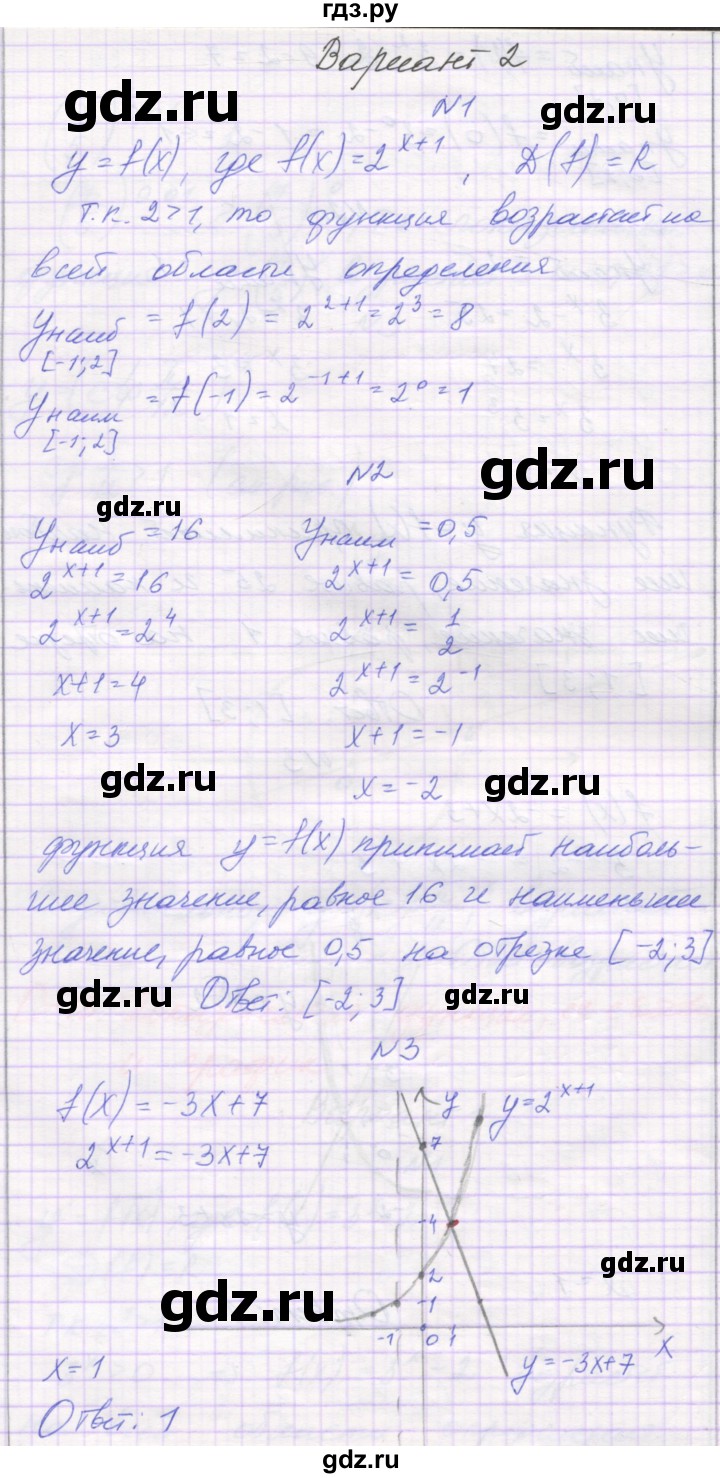 гдз.ру
Вариант 2
gdz.ru
N1
y = f(x), где f(x) = 2^{x+1}, D(f) = R
т.к. 2>1, то функция возрастает на
всей области определения
y наиб [-1; 2] = f(2) = 2^{2+1} = 2^3 = 8
y наим [-1; 2] = f(-1) = 2^{-1+1} = 2^0 = 1
N2
gdz.ru
gdz.ru
y наиб = 16 y наим = 0,5
2^{x+1} = 16 2^{x+1} = 0,5
2^{x+1} = 2^4 2^{x+1} = 1/2
x+1 = 4 2^{x+1} = 2^{-1}
x = 3 x+1 = -1
gdz.ru gdz.ru
x = -2
функция y = f(x) принимает наиболь-
шее значение, равное 16 и наименьшее
значение, равное 0,5 на отрезке [-2; 3]
gdz.ru Ответ: [-2; 3] gdz.ru
N3
f(x) = -3x+7 y y = 2^{x+1}
2^{x+1} = -3x+7 7
4
gdz.ru
2
gdz.ru
1
-1 0 1 x
x = 1 y = -3x+7
Ответ: 1
gdz.ru